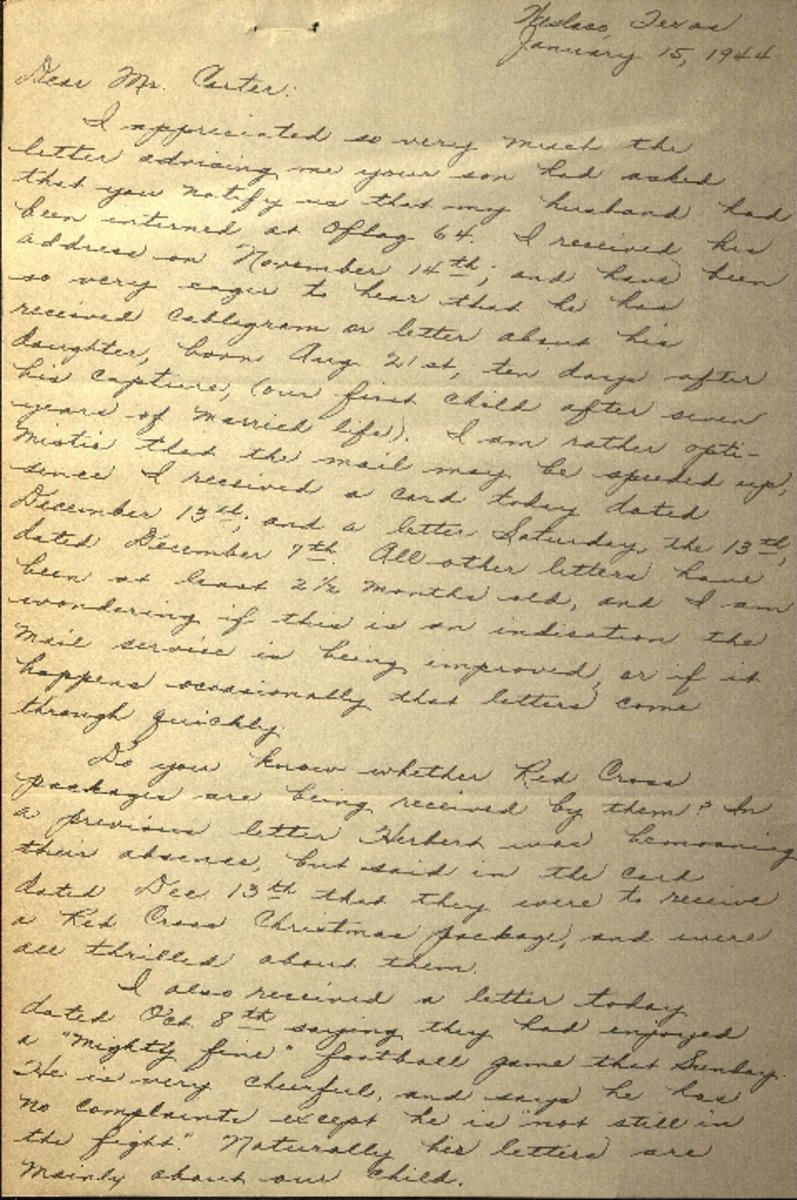 Weslaco, Texas
January 15, 1944
Dear Mr. Carter:
I appreciated so very much the
letter advising me your son had asked
that you notify us that my husband had
been interned at Oflag 64. I received his
address on November 14th; and have been
so very eager to hear that he has
received cablegram or letter about his
daughter, born Aug. 21st, ten days after
his capture, (our first child after seven
years of married life). I am rather opti-
mistic that the mail may be speeded up,
since I received a card today dated
December 13th; and a letter Saturday, the 13th,
dated December 7th. All other letters have
been at least 2½ months old, and I am
wondering if this is an indication the
mail service is being improved, or if it
happens occasionally that letters come
through quickly.
Do you know whether Red Cross
packages are being received by them? In
a previous letter Herbert was bemoaning
their absence, but said in the card
dated Dec 13th that they were to receive
a Red Cross Christmas package, and were
all thrilled about them.
I also received a letter today
dated Oct. 8th saying they had enjoyed
a "mighty fine" football game that Sunday.
He is very cheerful, and says he has
no complaints except he is "not still in
the fight." Naturally his letters are
mainly about our child.